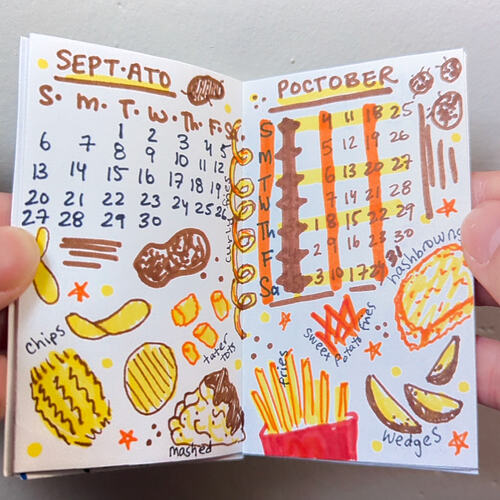 SEPT·ATO
S· M· T· W· Th· F· S·
1 2 3 4 5
6 7 8 9 10 11 12
13 14 15 16 17 18 19
20 21 22 23 24 25 26
27 28 29 30
curly fries
chips
tater tots
mashed
POCTOBER
S 4 11 18 25
M 5 12 19 26
T 6 13 20 27
W 7 14 21 28
Th 1 8 15 22 29
F 2 9 16 23 30
Sa 3 10 17 24 31
hashbrowns
sweet potato fries
fries
wedges